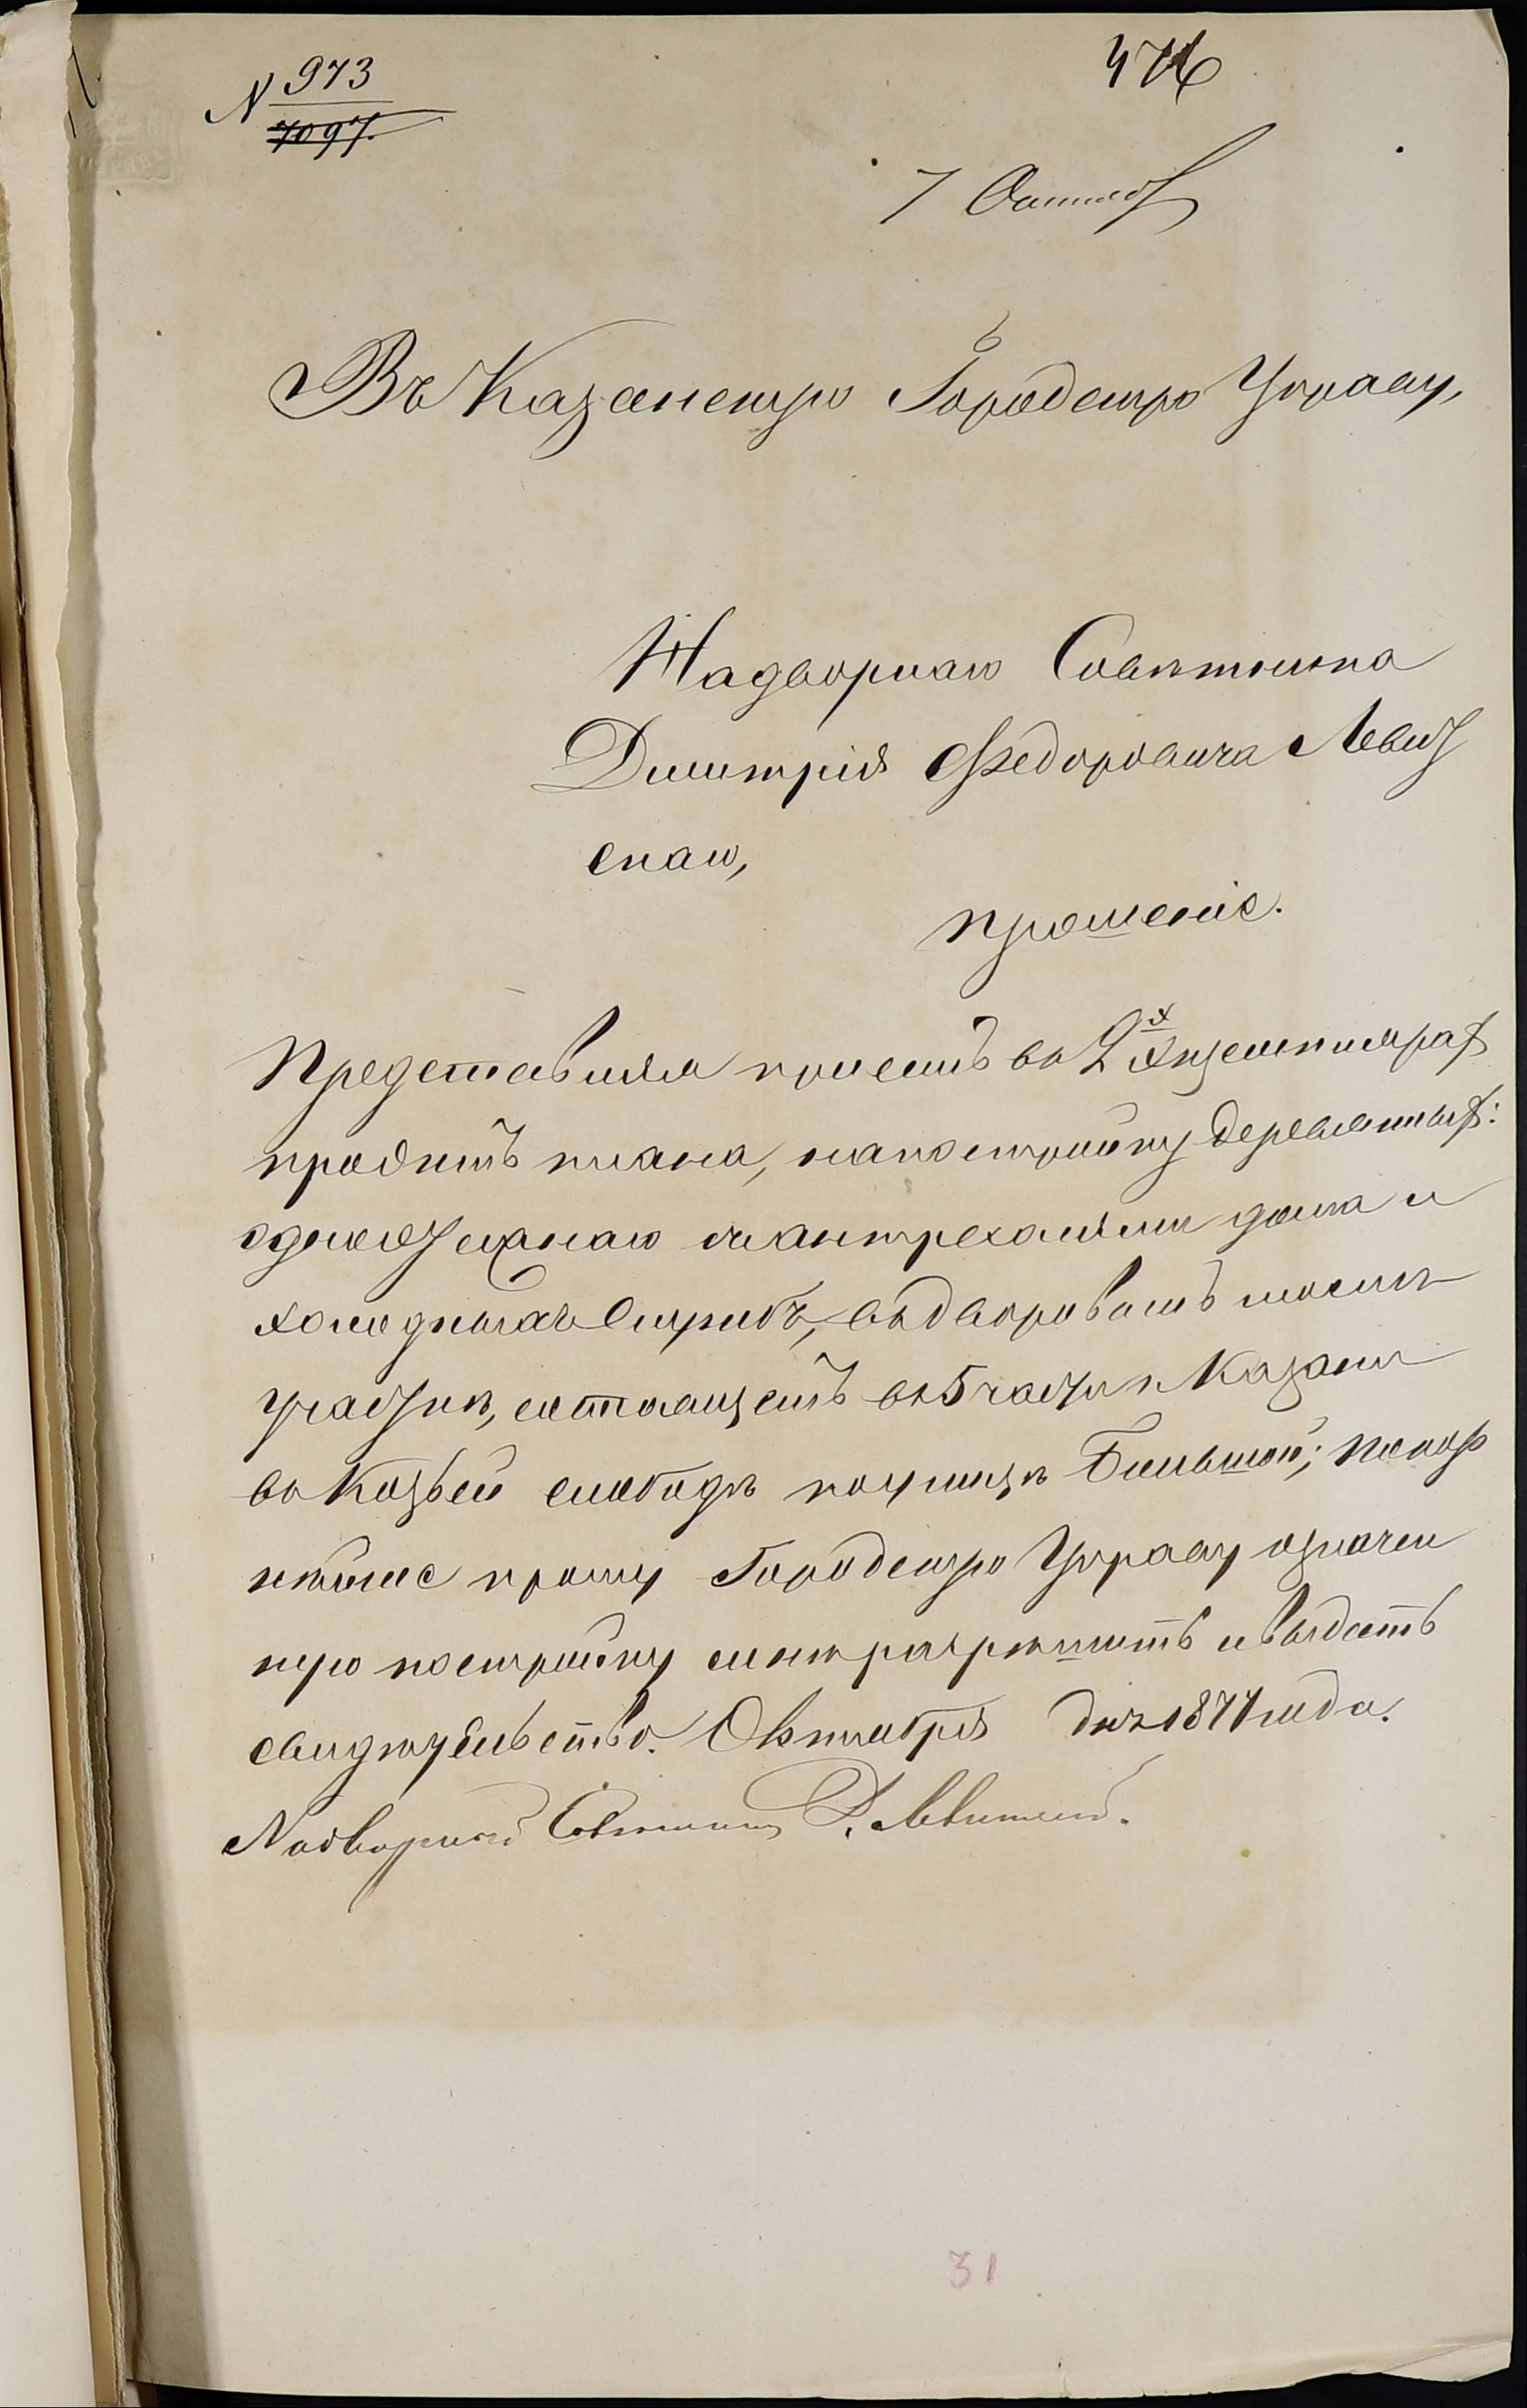 N 973
7097.
476
7 Октяб
Въ Казанскую Городскую Управу,
Надворнаго Советника
Димитрія Федоровича Левит
скаго,
прошеніе.
Представляя при семъ въ 2х экземплярах
проэктъ плана, на постройку деревянных:
одноэтажнаго съ антресолями дома и
холодныхъ служебъ, въ дворовомъ моемъ
участкѣ, состоящемъ въ 5 части г. Казани
въ Козьей слободѣ по улицѣ Большой; покор
нѣйше прошу Городскую Управу означен
ную постройку мнѣ разрѣшить и выдать
свидѣтельство. Октября дня 1877 года.
Надворный Советникъ Д. Левитскій.
31